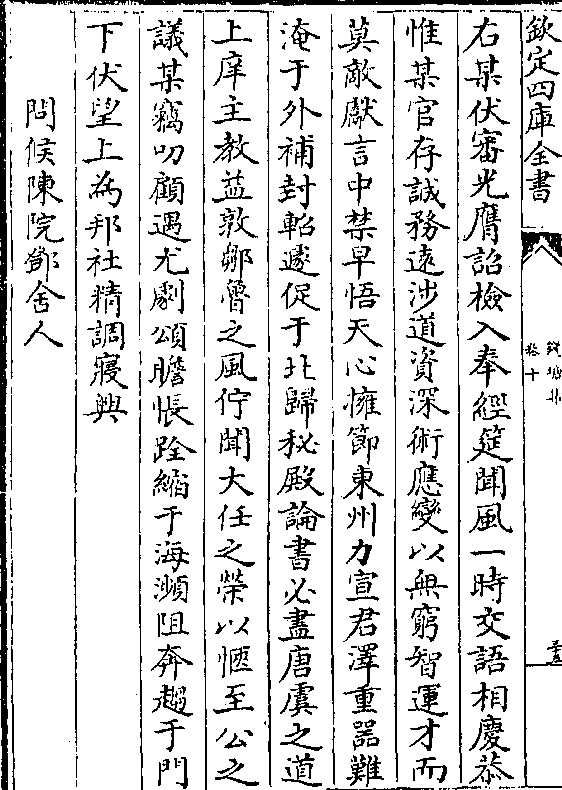 欽定四庫全書
錢塘集
卷十
右某伏審光膺詔檢入奉經筵聞風一時交語相慶恭
惟某官存誠務遠涉道資深術應變以無窮智運才而
莫敵獻言中禁早悟天心擁節東州力宣君澤重器難
淹于外補封軺遽促于北歸秘殿論書必盡唐虞之道
上庠主教益敦鄒魯之風佇聞大任之榮以愜至公之
議某竊叨顧遇尤劇頌瞻悵跧縮于海瀕阻奔趨于門
下伏望上為邦社精調寢興
問候陳院鄧舍人